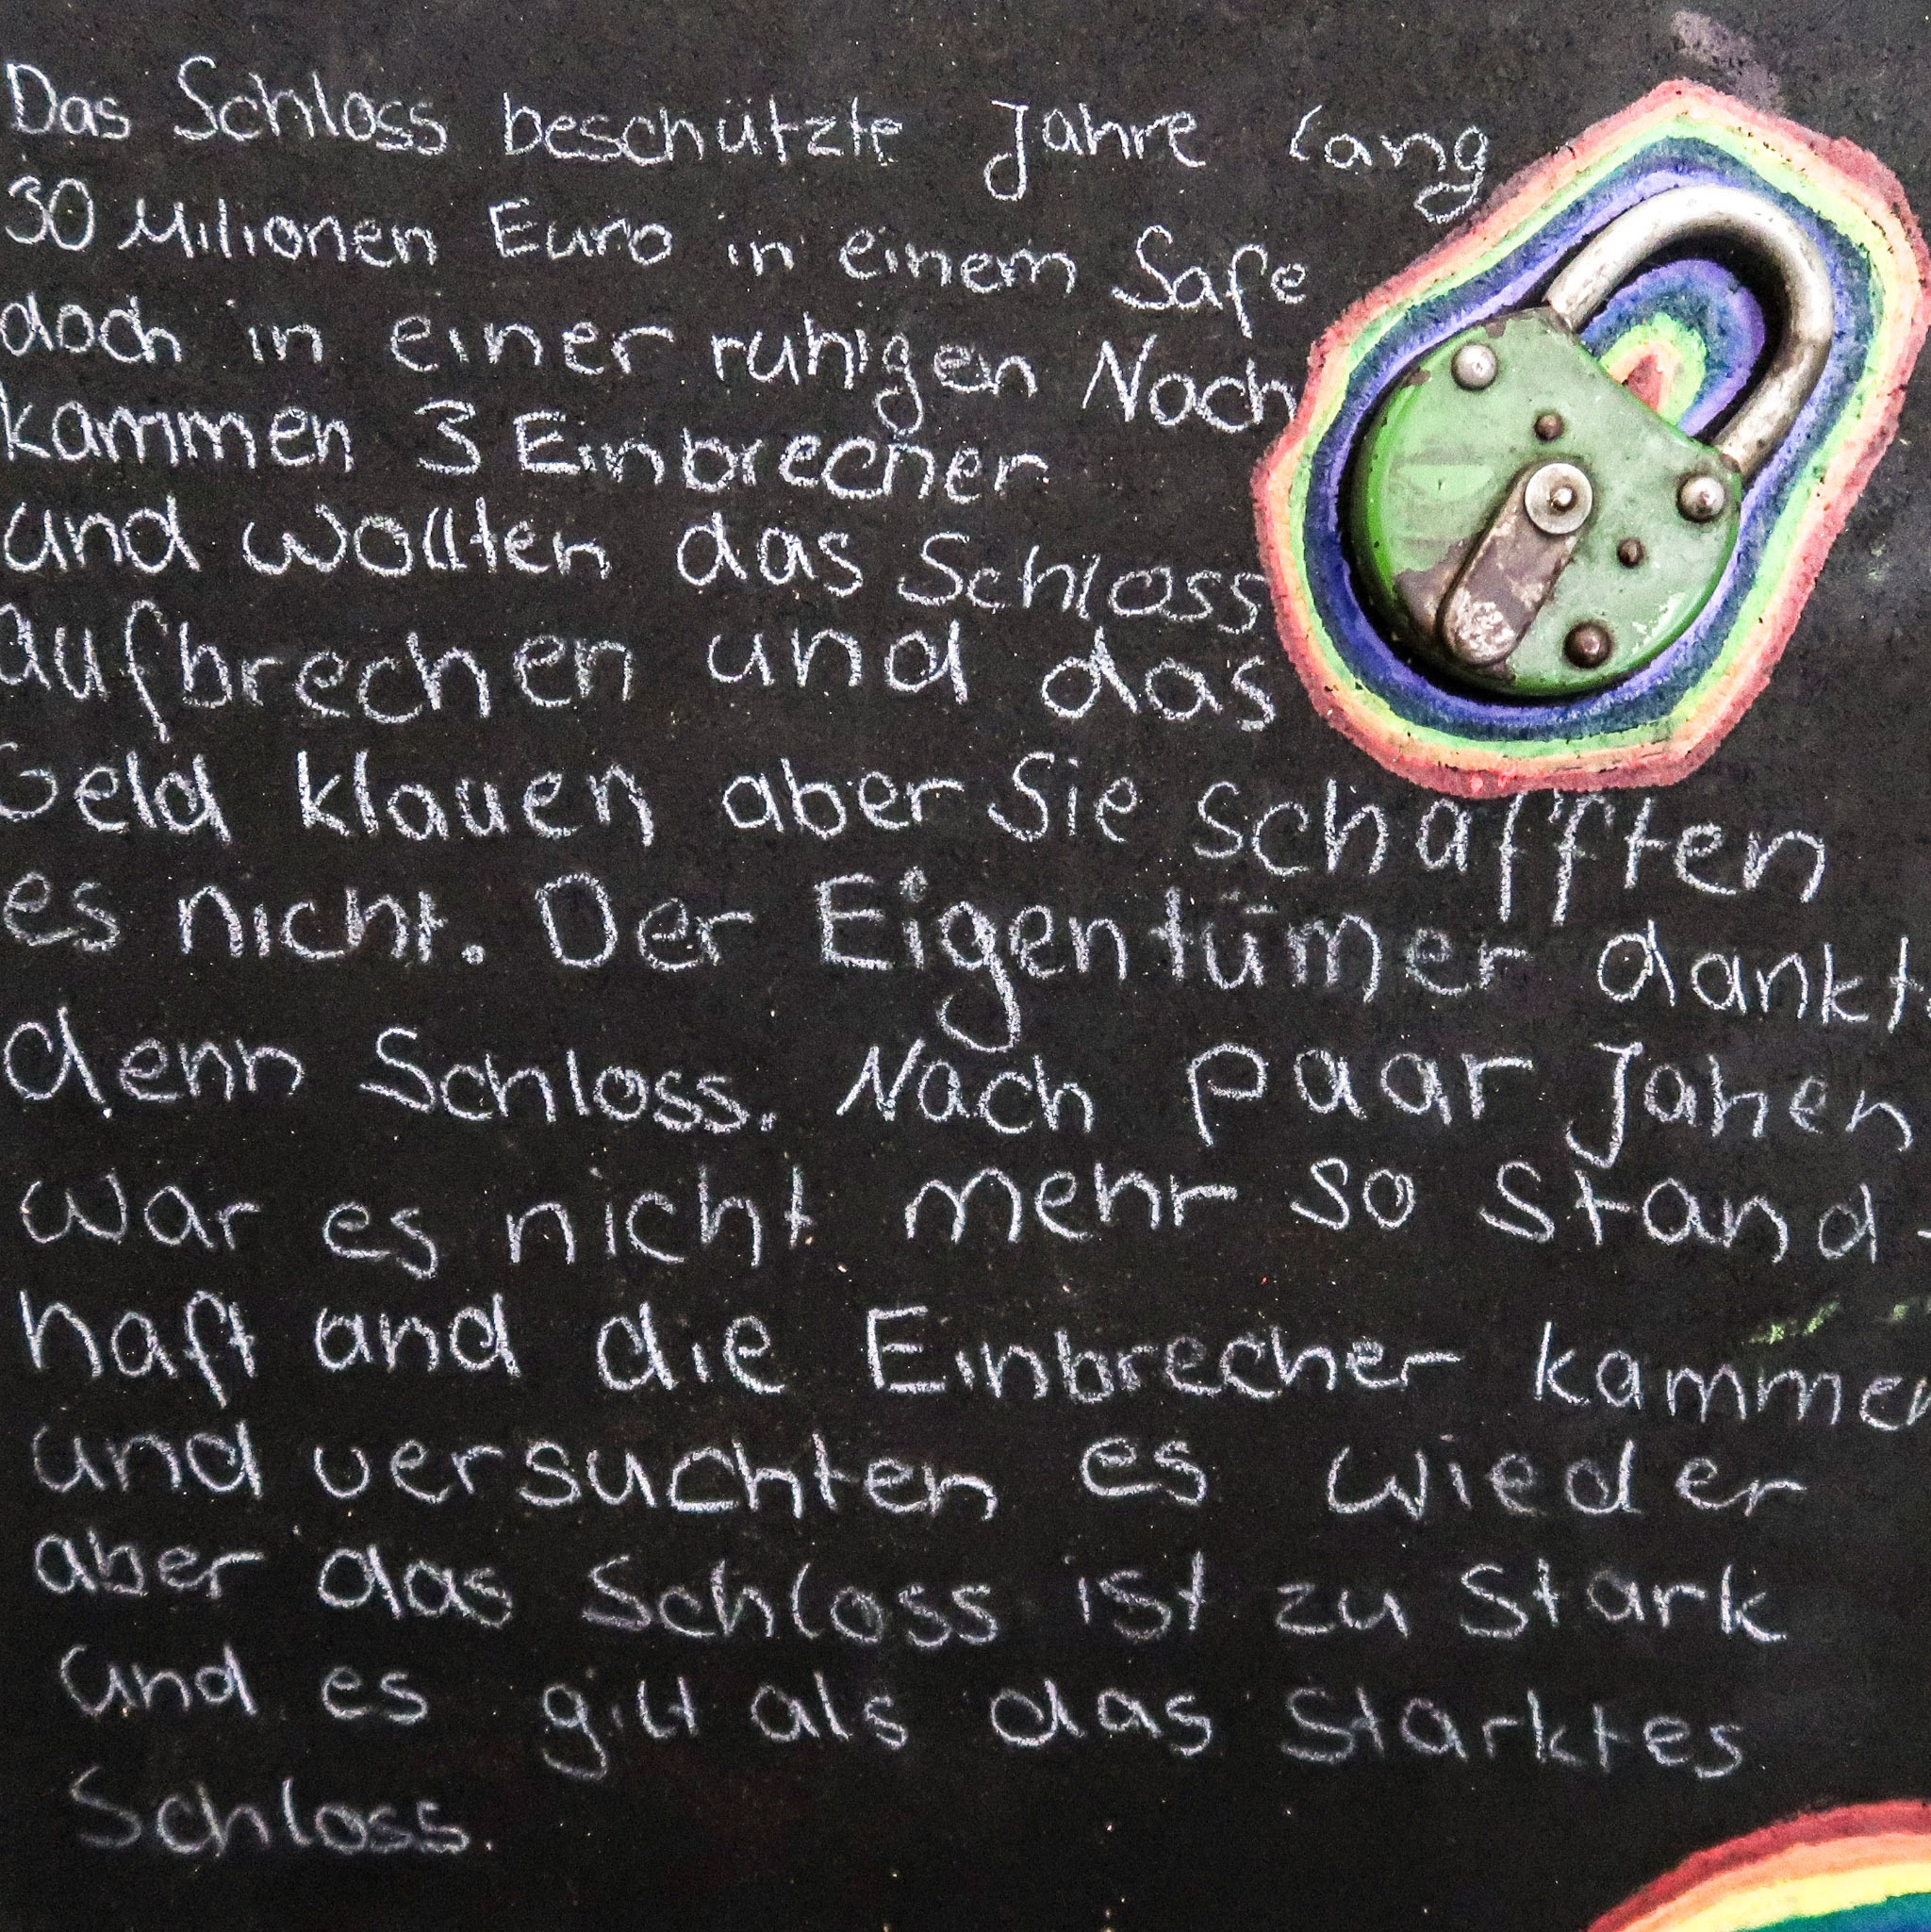 Das Schloss beschützte Jahre lang
30 Milionen Euro in einem Safe
doch in einer ruhigen Nach
kammen 3 Einbrecher
und wollten das Schloss
aufbrechen und das
Geld klauen aber Sie schafften
es nicht. Der Eigentümer dankt
denn Schloss. Nach paar Jahen
war es nicht mehr so Stand-
haft und die Einbrecher kammen
und versuchten es wieder
aber das Schloss ist zu Stark
und es gilt als das Starktes
Schloss.